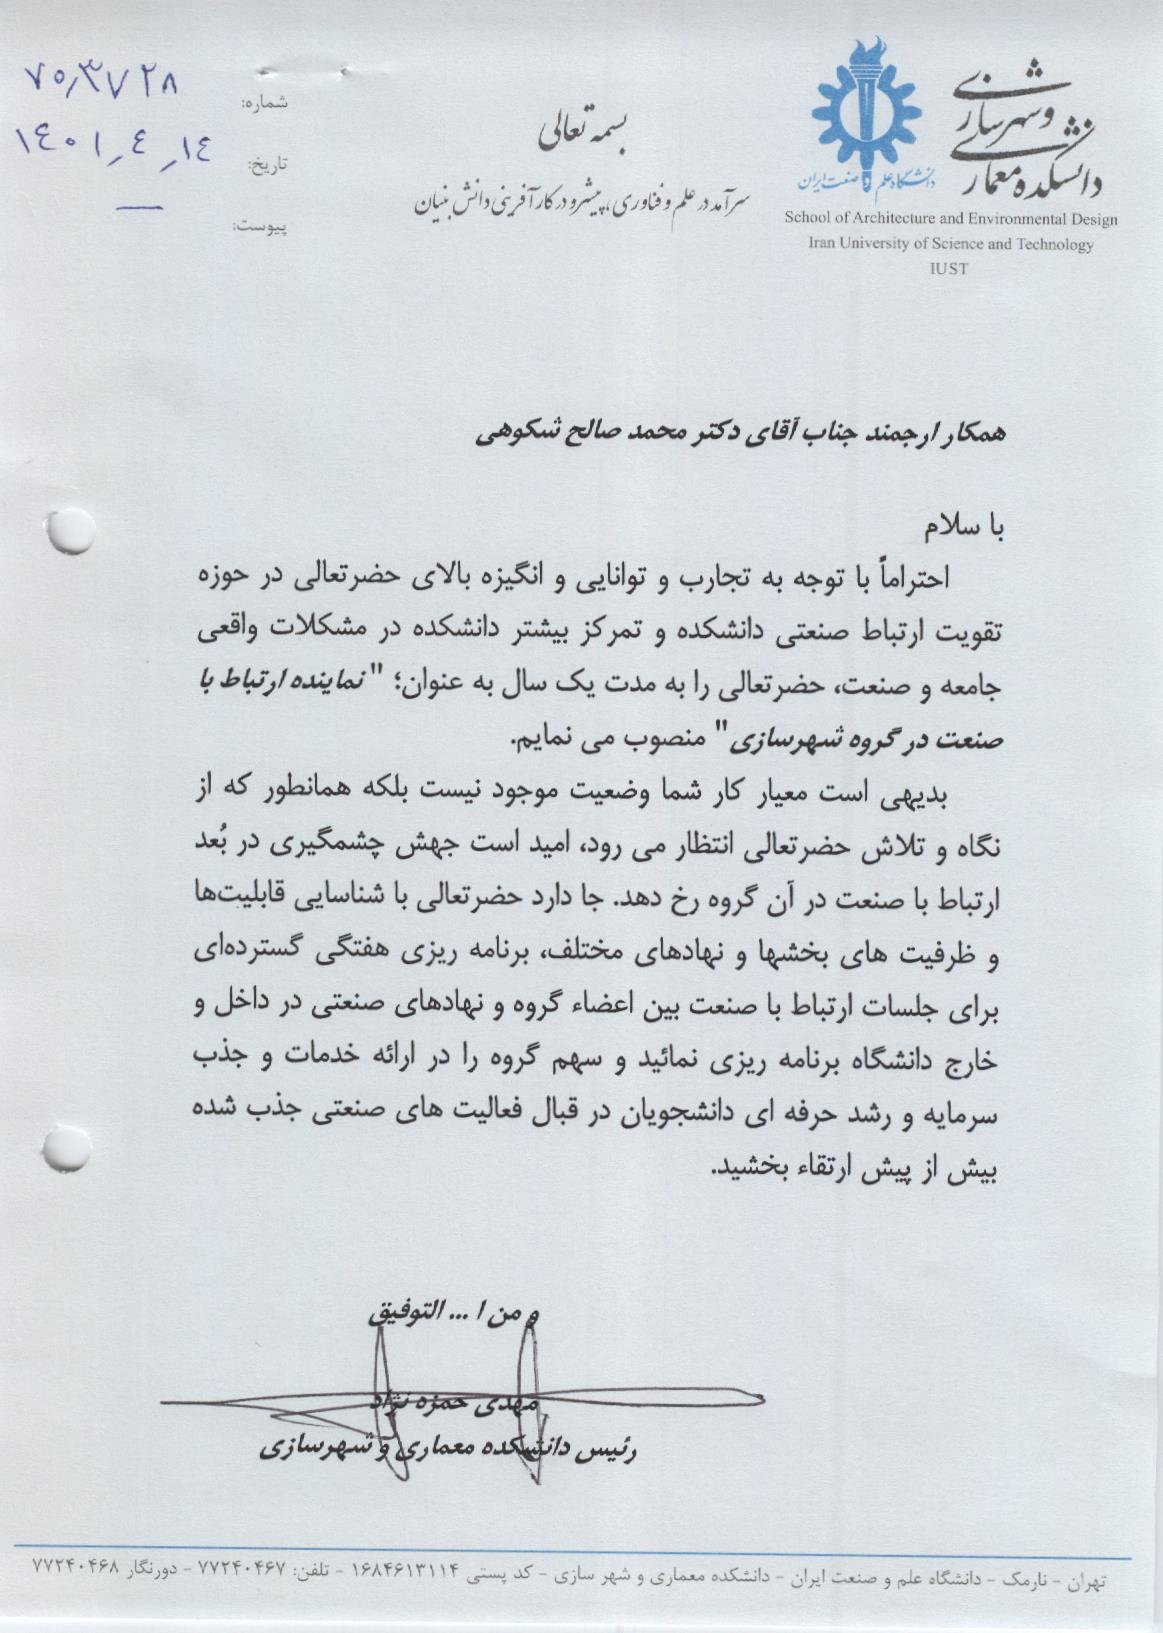 دانشکده معماری و شهرسازی
دانشگاه علم و صنعت ایران
School of Architecture and Environmental Design
Iran University of Science and Technology
IUST
بسمه تعالی
سرآمد در علم و فناوری، پیشرو در کارآفرینی دانش بنیان
شماره: ۷۵٫۳۷۲۸
تاریخ: ۱۴۰۱٫۴٫۱۴
پیوست: —
همکار ارجمند جناب آقای دکتر محمد صالح شکوهی
با سلام
احتراماً با توجه به تجارب و توانایی و انگیزه بالای حضرتعالی در حوزه
تقویت ارتباط صنعتی دانشکده و تمرکز بیشتر دانشکده در مشکلات واقعی
جامعه و صنعت، حضرتعالی را به مدت یک سال به عنوان؛ "نماینده ارتباط با
صنعت در گروه شهرسازی" منصوب می نمایم.
بدیهی است معیار کار شما وضعیت موجود نیست بلکه همانطور که از
نگاه و تلاش حضرتعالی انتظار می رود، امید است جهش چشمگیری در بُعد
ارتباط با صنعت در آن گروه رخ دهد. جا دارد حضرتعالی با شناسایی قابلیت‌ها
و ظرفیت های بخشها و نهادهای مختلف، برنامه ریزی هفتگی گسترده‌ای
برای جلسات ارتباط با صنعت بین اعضاء گروه و نهادهای صنعتی در داخل و
خارج دانشگاه برنامه ریزی نمائید و سهم گروه را در ارائه خدمات و جذب
سرمایه و رشد حرفه ای دانشجویان در قبال فعالیت های صنعتی جذب شده
بیش از پیش ارتقاء بخشید.
و من ا ... التوفیق
مهدی حمزه نژاد
رئیس دانشکده معماری و شهرسازی
تهران - نارمک - دانشگاه علم و صنعت ایران - دانشکده معماری و شهر سازی - کد پستی ۱۶۸۴۶۱۳۱۱۴ - تلفن: ۷۷۲۴۰۴۶۷ - دورنگار ۷۷۲۴۰۴۶۸